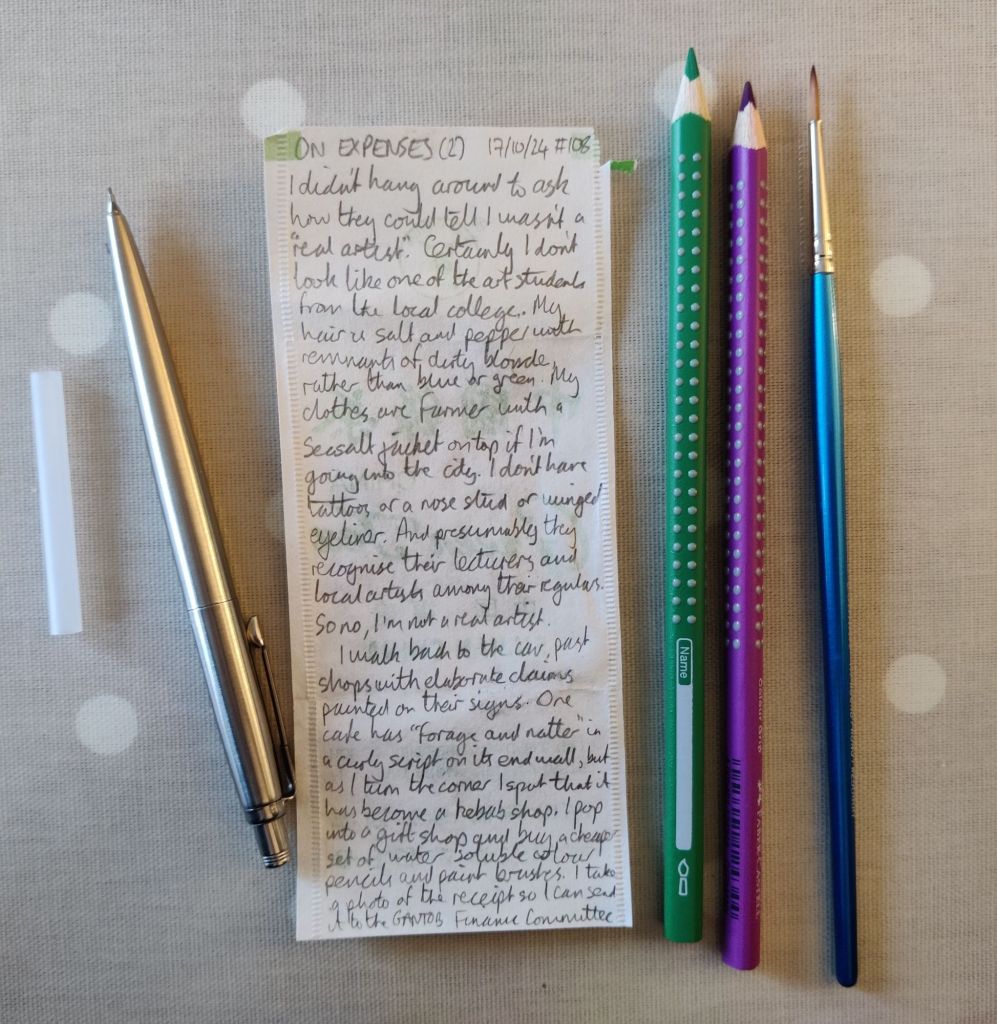 ON EXPENSES (2) 17/10/24 #108
I didn't hang around to ask
how they could tell I wasn't a
"real artist". Certainly I don't
look like one of the art students
from the local college. My
hair is salt and pepper with
remnants of dirty blonde
rather than blue or green. My
clothes are Farmer with a
Seasalt jacket on top if I'm
going into the city. I don't have
tattoos or a nose stud or winged
eyeliner. And presumably they
recognise their lecturers and
local artists among their regulars.
So no, I'm not a real artist.
I walk back to the car, past
shops with elaborate claims
painted on their signs. One
cafe has "Forage and natter" in
a curly script on its end wall, but
as I turn the corner I spot that it
has become a kebab shop. I pop
into a gift shop and buy a cheap
set of water soluble colour
pencils and paint brushes. I take
a photo of the receipt so I can send
it to the GANTOB Finance Committee
Name
Colour Grip
FABER-CASTELL